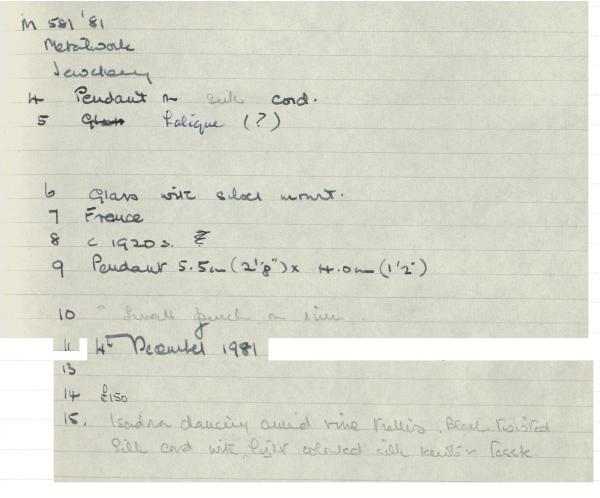 M 581 '81
Metalwork
Jewellery
4 Pendant on silk cord.
5 Glass Lalique (?)
6 Glass with silver mount.
7 France
8 c 1920s.
9 Pendant 5.5cm (2⅛") x 4.0cm (1½")
10 Small on rim.
11 4th December 1981
13
14 £150
15. Isadora dancing amid vine trellis. Black twisted
silk cord with light coloured silk knot &